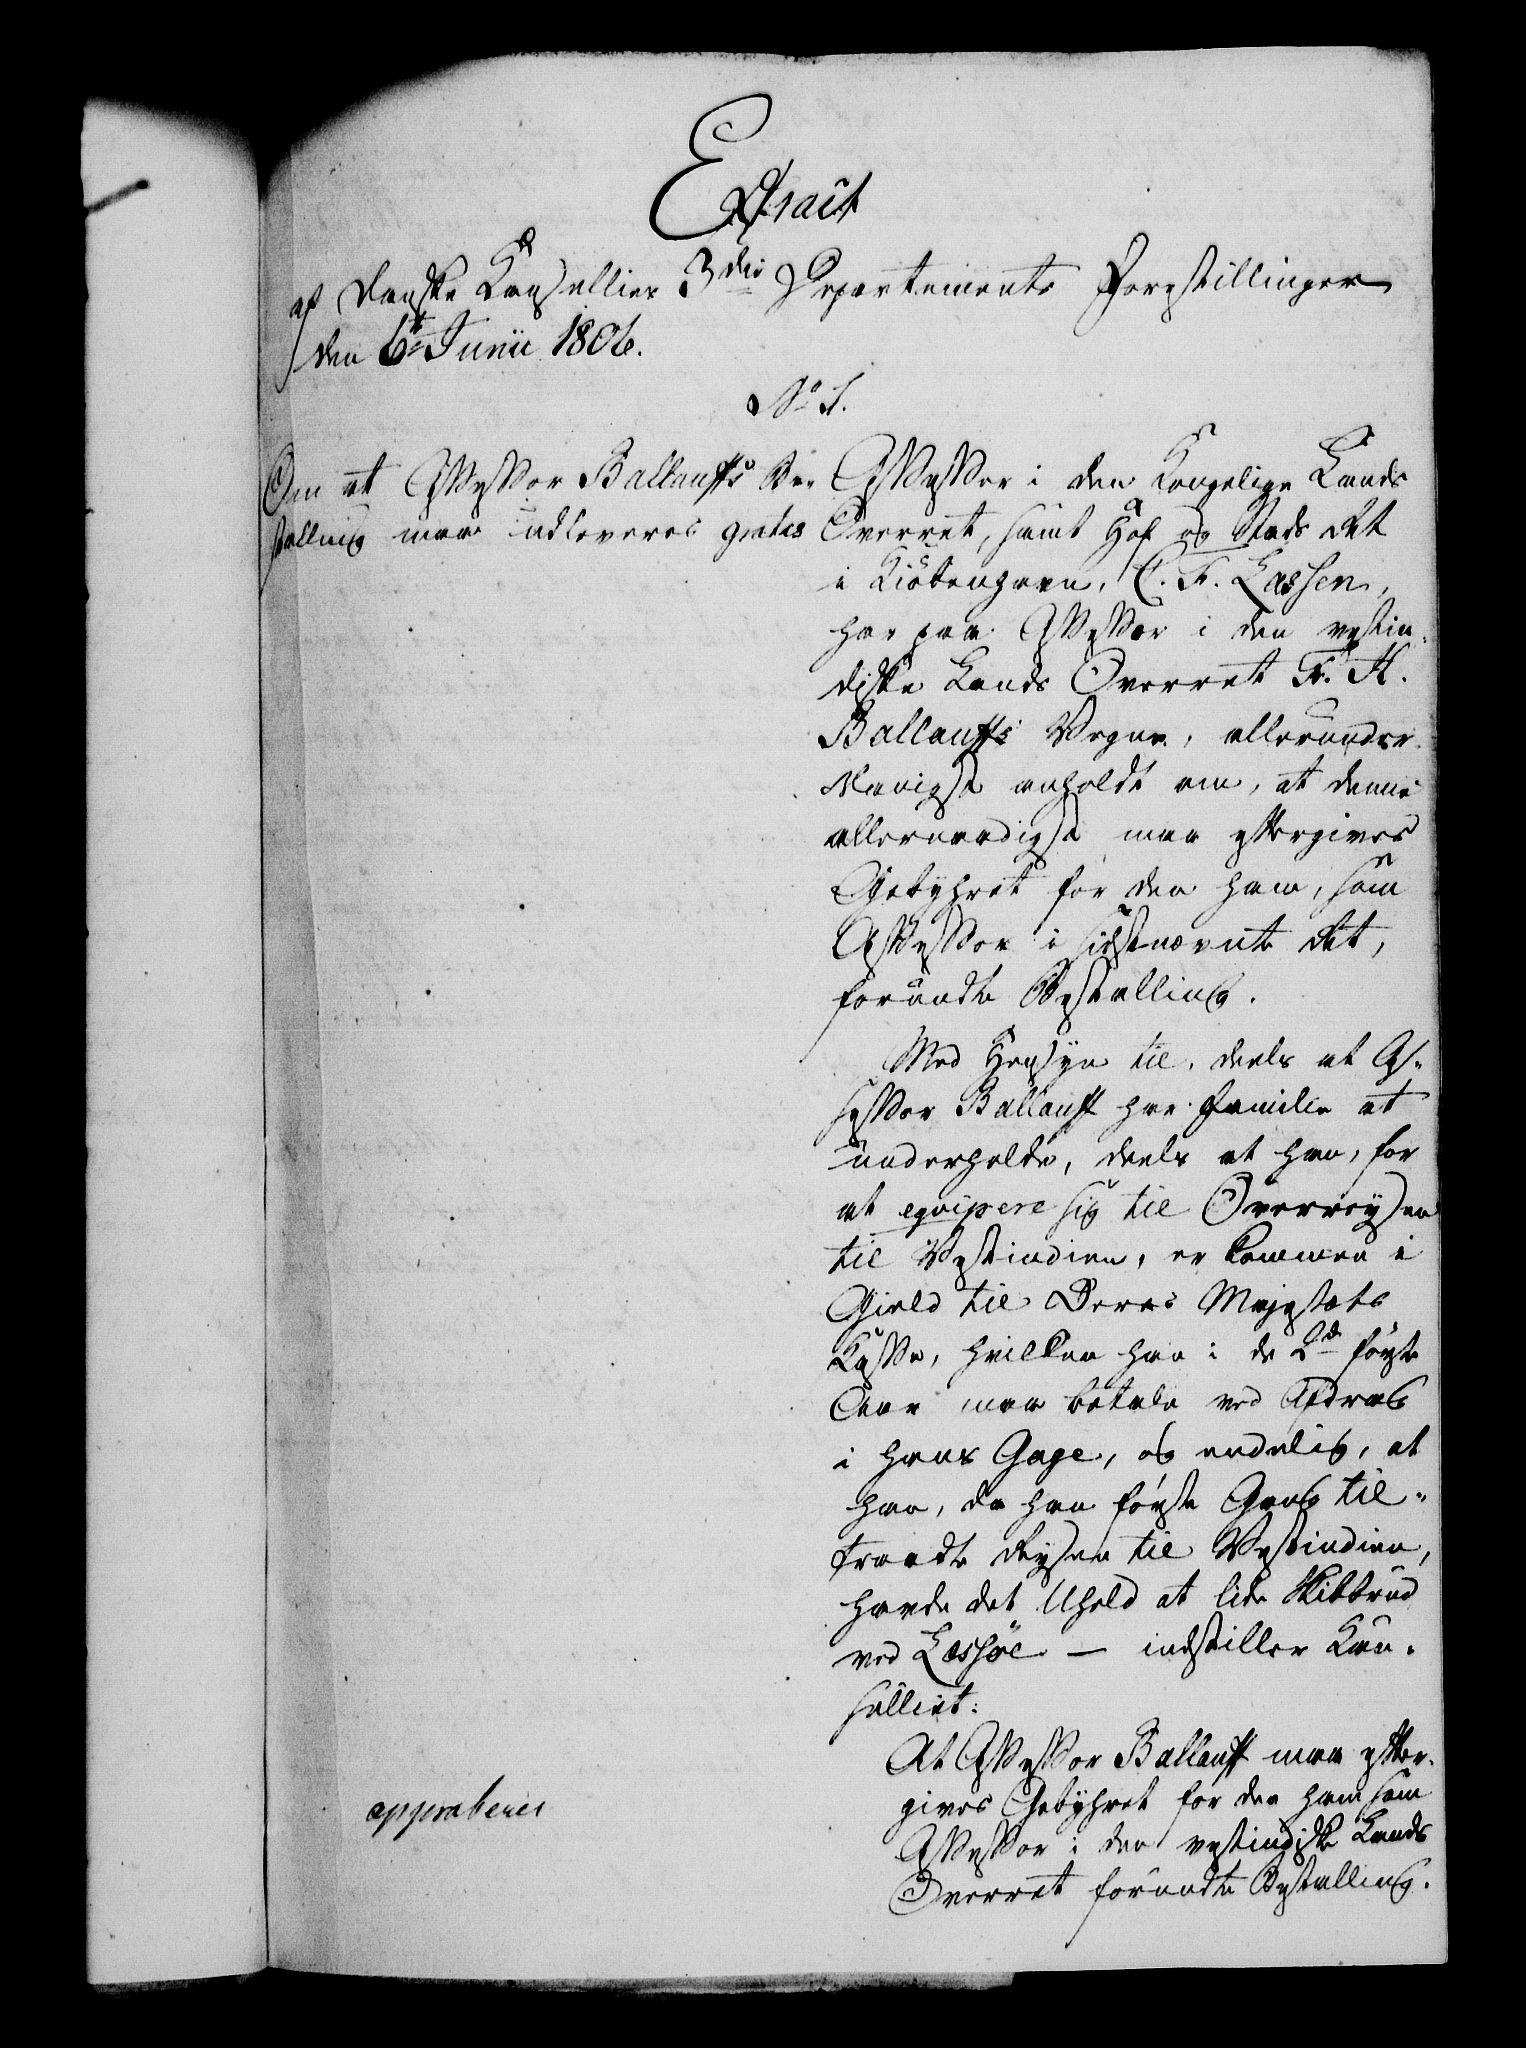 Extract
af danske Kancelliets 3die Departements Forestillinger
den 6te Junii 1806.
No 1.
Om at Assessor Ballauffs Be-
stalling maa udleveres gratis
Assessor i den Kongelige Lands
Overret, samt Hof og Stads Ret
i Kiöbenhavn, C. F. Lassen,
har paa Assessor i den vestin-
diske Lands Overret Fr. H.
Ballauffs Vegne, allerunder-
danigst anholdt om, at denne
allernaadigst maa eftergives
Gebyhret for den ham, som
Assessor i sidstnævnte Ret,
forundte Bestalling.
Med Hensyn til, deels at As-
sessor Ballauff har Familie at
underholde, deels at han, for
at eqvipere sig til Overreysen
til Vestindien, er kommen i
Gield til Deres Majestæts
Kasse, hvilken han i de 2de förste
Aar maa betale ved Afdrag
i hans Gage, og endelig, at
han, da han förste Gang til-
traadte Reysen til Vestindien,
havde det Uheld at lide Skibbrud
ved Læssöe — indstiller Can-
celliet:
At Assessor Ballauff maa efter-
gives Gebyhret for den ham som
Assessor i den vestindiske Lands
Overret forundte Bestalling.
approberes